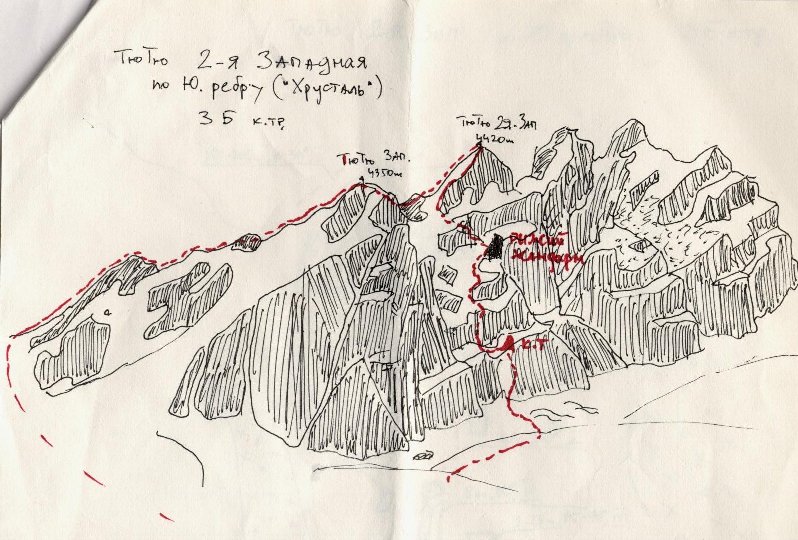 ТюТю 2-я Западная
по Ю. ребру ("Хрусталь")
3Б к.тр.
ТюТю 2я. Зап
4420m
ТюТю Зап.
4350m
Рыжий
жандарм
К.Т